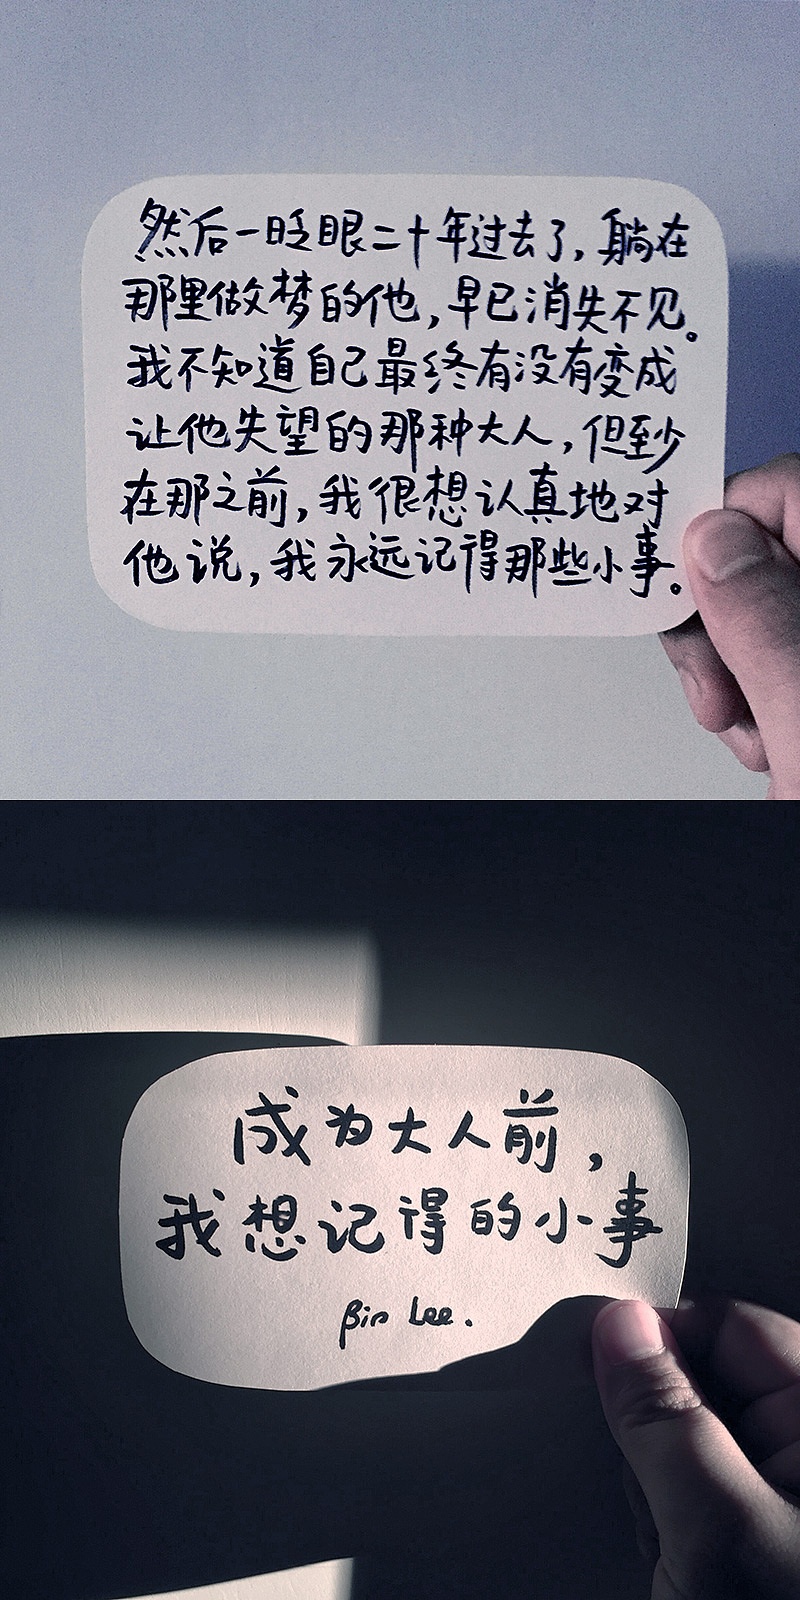 然后一眨眼二十年过去了,躺在
那里做梦的他,早已消失不见。
我不知道自己最终有没有变成
让他失望的那种大人,但至少
在那之前,我很想认真地对
他说,我永远记得那些小事。
成为大人前,
我想记得的小事
Bin Lee.